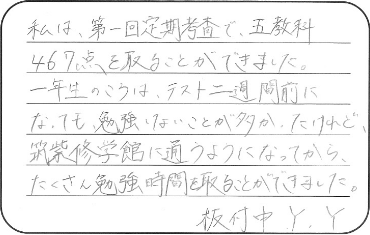 私は、第一回定期考査で、五教科
467点を取ることができました。
一年生のころは、テスト二週間前に
なっても、勉強しないことが多かったけれど、
筑紫修学館に通うようになってから、
たくさん勉強時間を取ることができました。
板付中 Y.Y